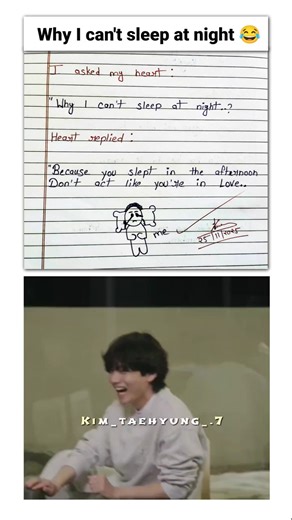 Why I can't sleep at night 😂
I asked my heart :
"Why I can't sleep at night..?
Heart replied :
"Because you slept in the afternoon
Don't act like you're in Love..
me
25/11/2025
KIM_TAEHYUNG_.7